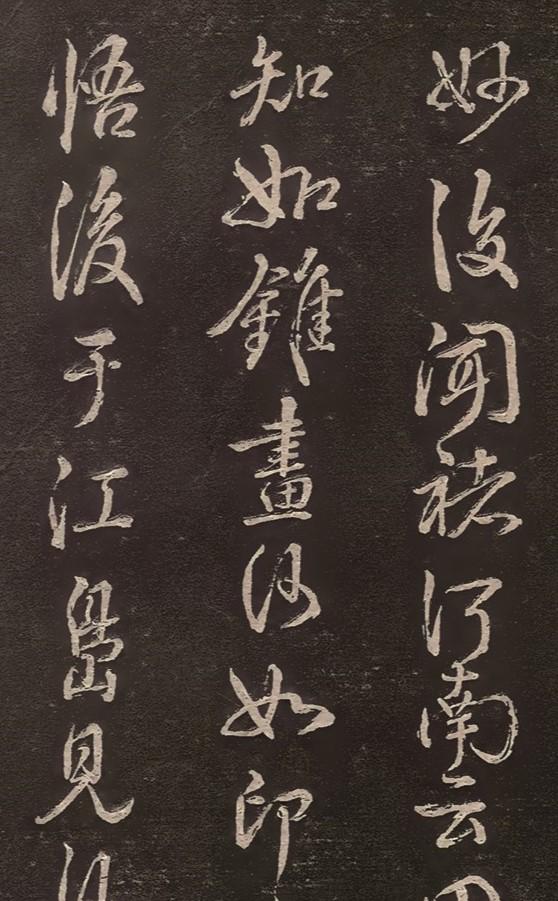 妙後聞褚河南云
知如錐畫沙如印
悟後于江島見